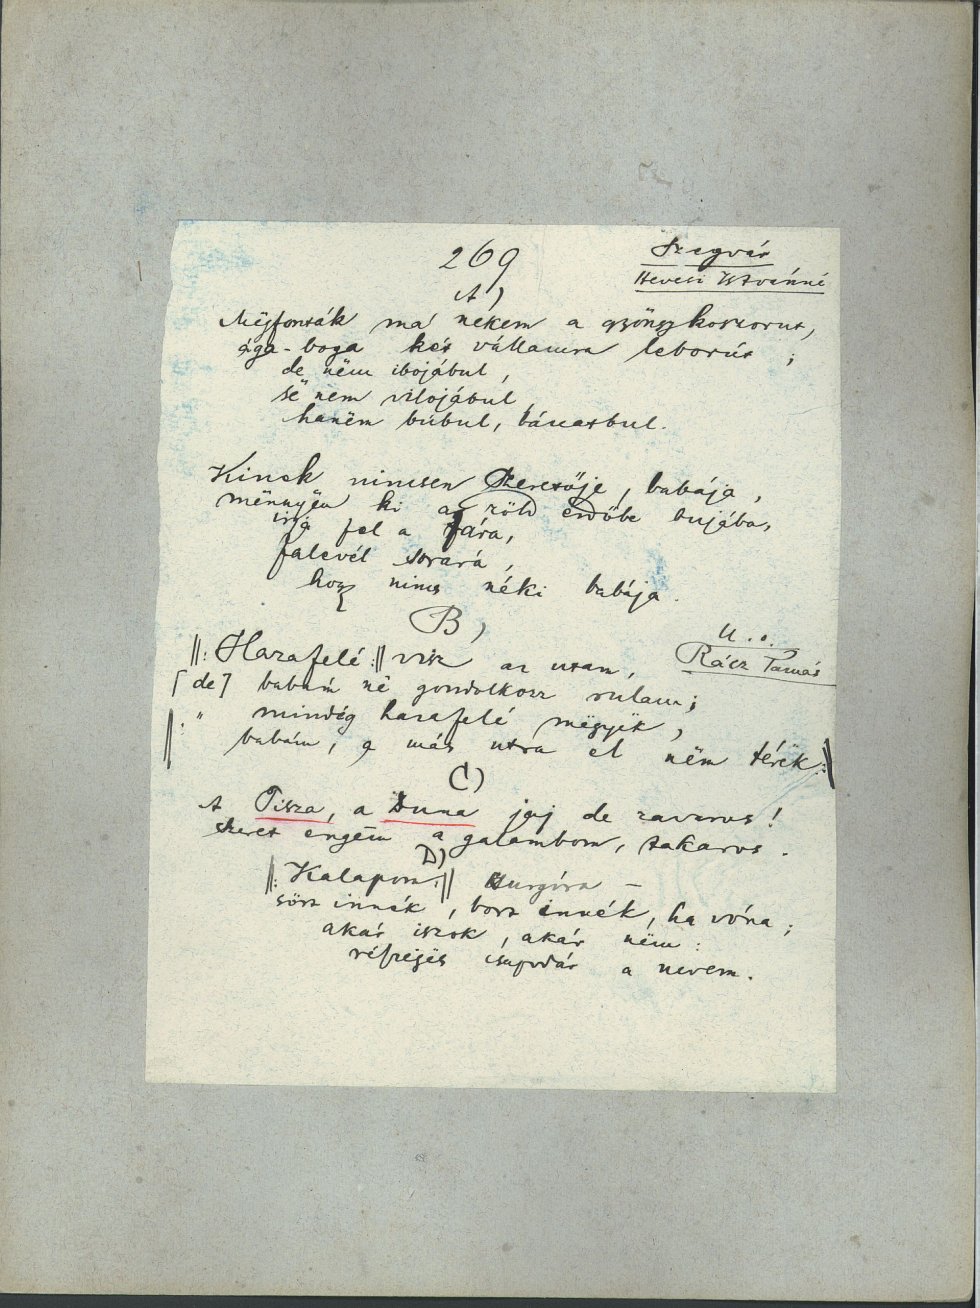 269
Szegvár
Hevesi Istvánné
A)
Mëgfonták má nekem a gyöngykoszorut,
ága-boga két vállamra leborút;
de nëm ibojábul,
së nëm vilojábul,
hanëm búbul, bánatbul.
Kinek nincsen szeretője, babája,
mënnyën ki a zöld erdőbe bujába,
írja fel a fára,
falevél sorára,
hogy nincs néki babája.
B)
U. o.
Rácz Tamás
‖: Hazafelé :‖ visz az utam,
[de] babám në gondolkozz rulam;
‖: " mindég hazafelé mëgyëk,
babám, a más utra el nëm térëk :‖
C)
A Tisza, a Duna jaj de zavaros!
szeret engëm a galambom, takaros.
D)
‖: Kalapom :‖ szurgóra –
sört innék, bort innék, ha vóna;
akár iszok, akár nëm:
réfrëgës csapodár a nevem.